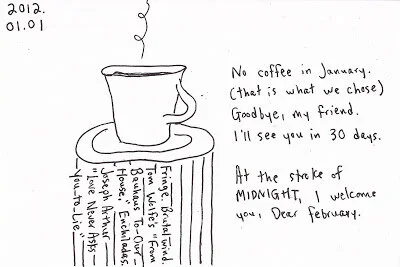 2012.
01.01
No coffee in January.
(that is what we chose)
Goodbye, my friend.
I'll see you in 30 days.
At the stroke of
MIDNIGHT, I welcome
you, Dear february.
Fringe. Brutal wind.
Tom Wolfe's "From
Bauhaus To-Our
House." Enchiladas.
Joseph Arthur
"Love Never Asks
You-to-Lie."